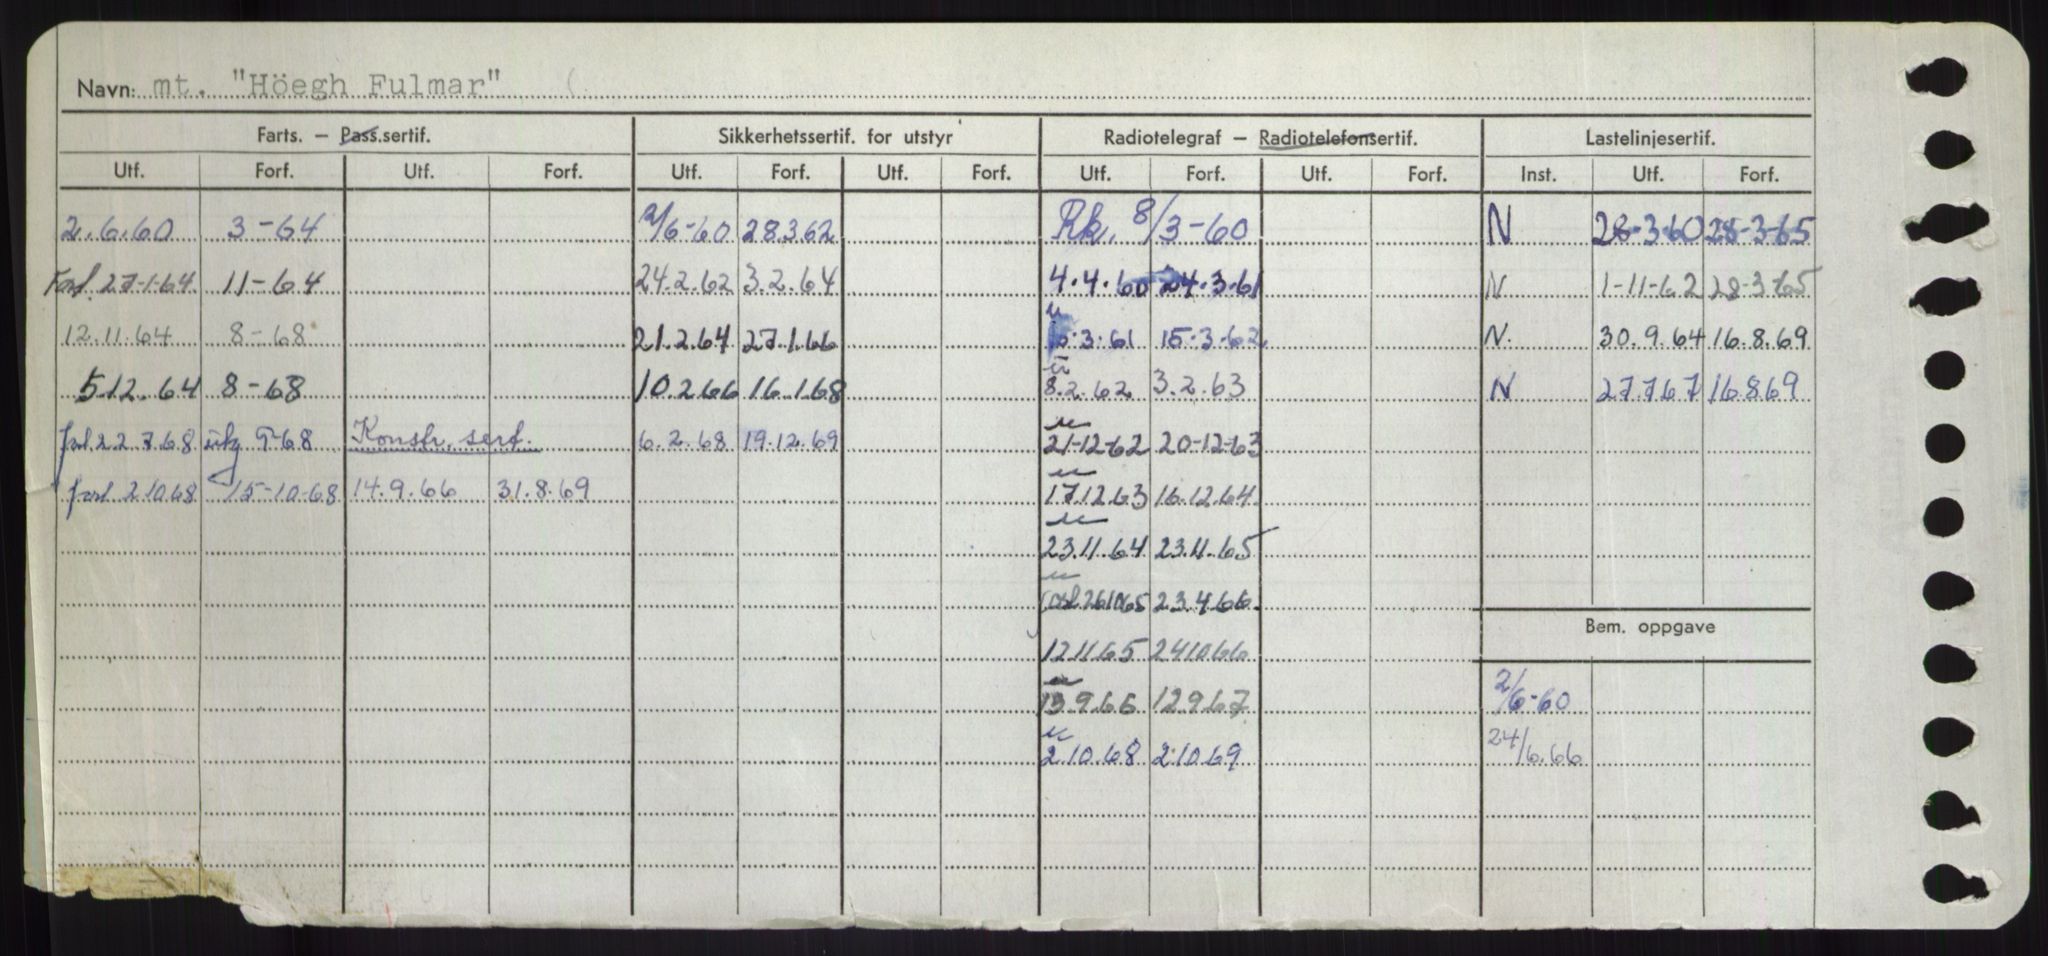 Navn: mt. "Höegh Fulmar"
Farts. — Pass.sertif. Sikkerhetssertif. for utstyr Radiotelegraf — Radiotelefonsertif. Lastelinjesertif.
Utf. Forf. Utf. Forf. Utf. Forf. Utf. Forf. Utf. Forf. Utf. Forf. Inst. Utf. Forf.
2.6.60 3-64 2/6-60 28.3.62 Rk. 8/3-60 N 28-3-60 28-3-65
Forl. 27-1-64 11-64 24.2.62 3.2.64 4.4.60 24.3.61 N 1-11-62 28-3-65
12.11.64 8-68 21.2.64 27.1.66 3.61 15-3-62 N. 30.9.64 16.8.69
5.12.64 8-68 10.2.66 16.1.68 8.2.62 3.2.63 N 27.7.67 16.8.69
forl 22.7.68 9-68 Konstr. sert. 6.2.68 19.12.69 21-12-62 20-12-63
forl 2.10.68 15-10-68 14.9.66 31.8.69 17.12.63 16.12.64
23.11.64 23.11.65
forl 26.10.65 23.4.66
Bem. oppgave
12.11.65 24.10.66
13.9.66 12.9.67 2/6-60
2.10.68 2.10.69 24/6.66